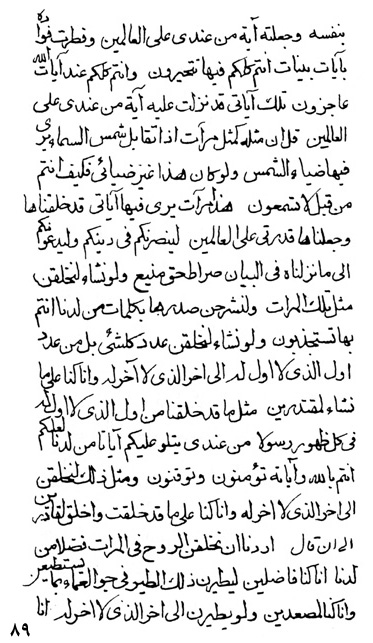 بنفسه وجعلته آية من عندى على العالمين وفطرت فؤاده
بآيات بينات انتم كلكم فيها تتحيرون وانتم كلكم عند آيات الله
عاجزون تلك آياتى قد نزلت عليه آية من عندى على
العالمين قل ان مثله كمثل مرآت اذا تقابل شمس السماء يرى
فيها ضياء الشمس ولو كان هذا غير ضيائى فكيف انتم
من قبل لا تسمعون هذا مرآت يرى فيها آياتى قد خلقناها
وجعلناها قدرتى على العالمين لينصرنكم فى دينكم وليدعونكم
الى ما نزلناه فى البيان صراط حق منيع ولو نشاء لنخلقن
مثل تلك المرات ولنشرحن صدرها بكلمات من لدنا انتم
بها تستجذبون ولو نشاء لنخلقن عدد كلشئ بل من عدد
اول الذى لا اول له الى اخر الذى لا آخر له وانا كنا على ما
نشاء لمقتدرين مثل ما قد خلقنا من اول الذى لا اول له
فى كل ظهور رسولا من عندى يتلو عليكم آياتنا من لدنا لعلكم
انتم بالله وآياته تؤمنون وتوقنون ومثل ذلك لنخلقن
الى اخر الذى لا اخر له وانا كنا على ما قد خلقت واخلق لقادرين
الى ان قال اردنا ان نخلقن الروح فى المرات فضلا من
لدنا انا كنا فاضلين ليطيرن ذلك الطير فى جو العماء بما يستطيعن
وانا كنا لمصعدين ولو يطيرن الى اخر الذى لا اخر له انا
٨٩